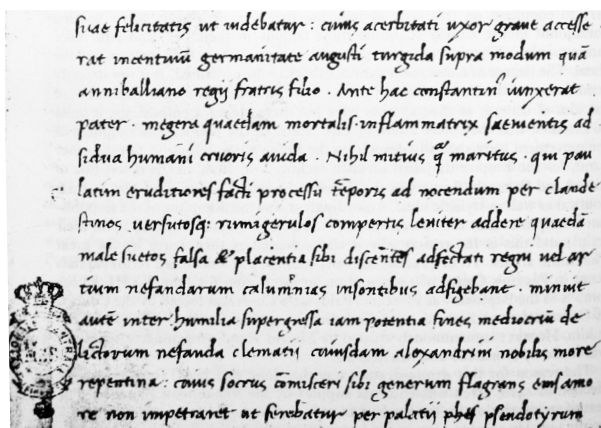 suae felicitatis ut uidebatur : cuius acerbitati uxor graue accesse
rat incentiuũ germanitate augusti turgida supra modum quã
anniballiano regij fratris filio . Ante hac constantinꝰ iunxerat
pater . megera quaedam mortalis . inflammatrix saeuientis ad
sidua humani cruoris auida . Nihil mitius q̃ maritus . qui pau
latim eruditiores facti processu tẽporis ad nocendum per clande
stinos uersutosq: rumigerulos compertis leniter addere quaedã
male suetos falsa & placentia sibi discentes adfectati regni uel ar
tium nefandarum calumnias insontibus adfigebant . minuit
autẽ inter humilia supergressa iam potentia fines mediocriũ de
lictorum nefanda clematii cuiusdam alexandrini nobilis more
repentina : cuius socrus cõmisceri sibi generum flagrans eius amo
re non impetraret ut ferebatur per palatii pseudotyrum